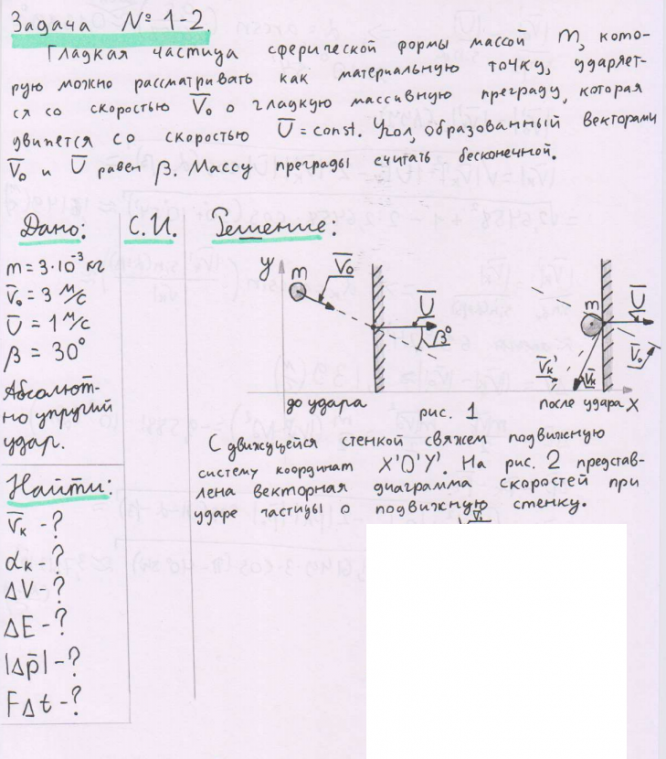 Задача № 1-2
Гладкая частица сферической формы массой m, кото-
рую можно рассматривать как материальную точку, ударяет-
ся со скоростью V̄₀ о гладкую массивную преграду, которая
движется со скоростью Ū = const. Угол, образованный векторами
V̄₀ и Ū равен β. Массу преграды считать бесконечной.
Дано: С.И. Решение:
m = 3·10⁻³ кг
V̄₀ = 3 м/с
Ū = 1 м/с
β = 30°
Абсолют-
но упругий
удар.
Найти:
V̄к - ?
αк - ?
ΔV - ?
ΔE - ?
|Δp̄| - ?
FΔt - ?
y m V̄₀ Ū β°
до удара
рис. 1
m Ū V̄₀ V̄к' V̄к
после удара X
С движущейся стенкой свяжем подвижную
систему координат X'O'Y'. На рис. 2 представ-
лена векторная диаграмма скоростей при
ударе частицы о подвижную стенку.